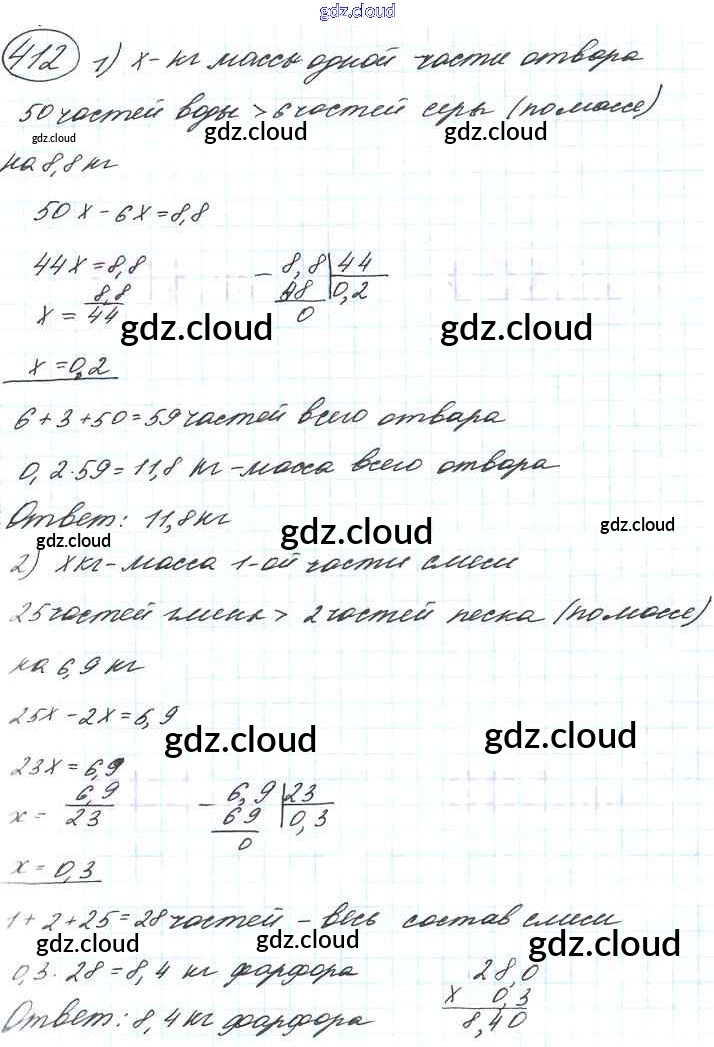 gdz.cloud
412 1) х-кг массы одной части отвара
50 частей воды > 6 частей серы (по массе)
gdz.cloud gdz.cloud gdz.cloud
на 8,8 кг
50х - 6х = 8,8
44х = 8,8
х = 8,8/44
- 8,8 | 44
48 0,2
0
gdz.cloud gdz.cloud
х = 0,2
6 + 3 + 50 = 59 частей всего отвара
0,2 · 59 = 11,8 кг - масса всего отвара
Ответ: 11,8 кг
gdz.cloud gdz.cloud gdz.cloud
2) х кг - масса 1-ой части смеси
25 частей глины > 2 частей песка (по массе)
на 6,9 кг
25х - 2х = 6,9
gdz.cloud gdz.cloud
23х = 6,9
х = 6,9/23
- 6,9 | 23
69 0,3
0
х = 0,3
1 + 2 + 25 = 28 частей - весь состав смеси
gdz.cloud gdz.cloud gdz.cloud
0,3 · 28 = 8,4 кг фарфора
28,0
х 0,3
8,40
Ответ: 8,4 кг фарфора